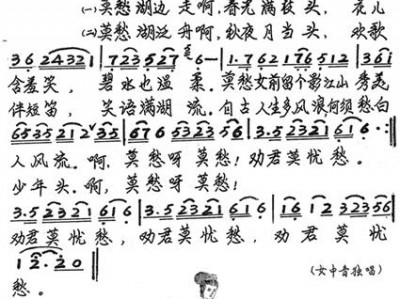 (一)莫愁湖边 走啊,春光满枝 头, 花儿
(二)莫愁湖泛 舟啊,秋夜月当 头, 欢歌
3 6 2 4 3 2 1 | 7 2 3 5 2 7 6 - | 1. 7 6 2 1 7 6 5 1 2 | 3 6 1
含羞笑, 碧水也温 柔.莫愁女前留个影江山 秀美
伴短笛, 笑语满湖 流.自古人生多风浪何须 愁白
6 5 3 5 2 1 2 3 5 | 6 7 6 5 3 2 3 5 6 | 1. 5 3 2 2 1 6 1 6 :|
人风流.啊, 莫愁呀 莫愁! 劝君莫忧 愁.
少年 头.啊, 莫愁呀 莫愁!
3. 5 2 3 2 1 6 1 6 | 3. 5 2 3 2 1 6 1 6 | 1 6 1 2 3 2 3 5 6
劝君莫忧 愁, 劝君莫忧 愁, 劝 君 莫 忧
1 2. 2 0
愁.
(女中音独唱)